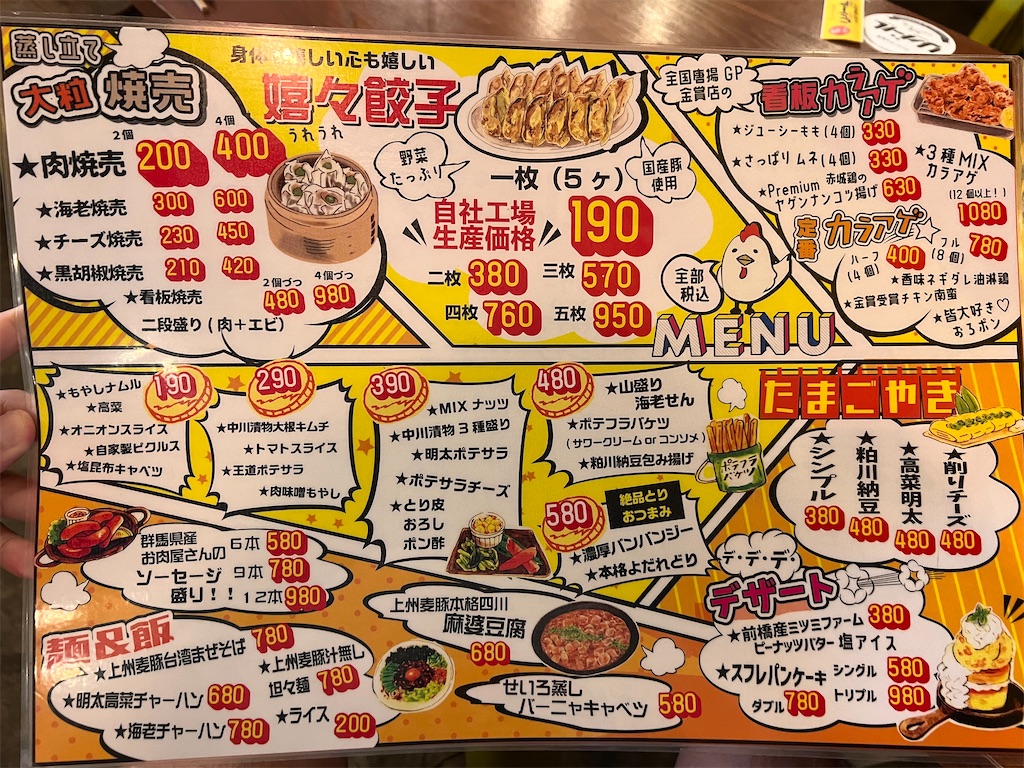 蒸し立て
大粒 焼売
2個 4個
★肉焼売 200 400
★海老焼売 300 600
★チーズ焼売 230 450
★黒胡椒焼売 210 420
2個づつ 4個づつ
★看板焼売 480 980
二段盛り(肉+エビ)
身体 嬉しい心も嬉しい
嬉々餃子
うれうれ
野菜
たっぷり
国産豚
使用
一枚(5ヶ)
自社工場
生産価格
190
二枚 380 三枚 570
四枚 760 五枚 950
全国唐揚GP
金賞店の
看板カラアゲ
★ジューシーモモ(4個) 330
★さっぱりムネ(4個) 330
★Premium 赤城鶏の
ヤゲンナンコツ揚げ 630
★3種MIX
カラアゲ
(12個以上!)
1080
定番 カラアゲ
ハーフ
(4個) 400
フル
(8個) 780
★香味ネギダレ油淋鶏
★金賞受賞チキン南蛮
★皆大好き♡
おろポン
全部
税込
MENU
190
★もやしナムル
★高菜
★オニオンスライス
★自家製ピクルス
★塩昆布キャベツ
290
★中川漬物大根キムチ
★トマトスライス
★王道ポテサラ
★肉味噌もやし
390
★MIXナッツ
★中川漬物3種盛り
★明太ポテサラ
★ポテサラチーズ
★とり皮
おろし
ポン酢
480
★山盛り
海老せん
★ポテフラバケツ
(サワークリームorコンソメ)
★粕川納豆包み揚げ
ポテフラ
バケツ
580
絶品とり
おつまみ
★濃厚バンバンジー
★本格よだれどり
たまごやき
★シンプル 380
★粕川納豆 480
★高菜明太 480
★削りチーズ 480
群馬県産
お肉屋さんの
ソーセージ
盛り!!
6本 580
9本 780
12本 980
麺&飯
★上州麦豚台湾まぜそば 780
★上州麦豚汁無し
坦々麺 780
★明太高菜チャーハン 680
★海老チャーハン 780
★ライス 200
上州麦豚本格四川
麻婆豆腐
680
せいろ蒸し
バーニャキャベツ 580
デ・デ・デ・
デザート
★前橋産ミツミファーム 380
ピーナッツバター塩アイス
★スフレパンケーキ シングル 580
ダブル 780 トリプル 980